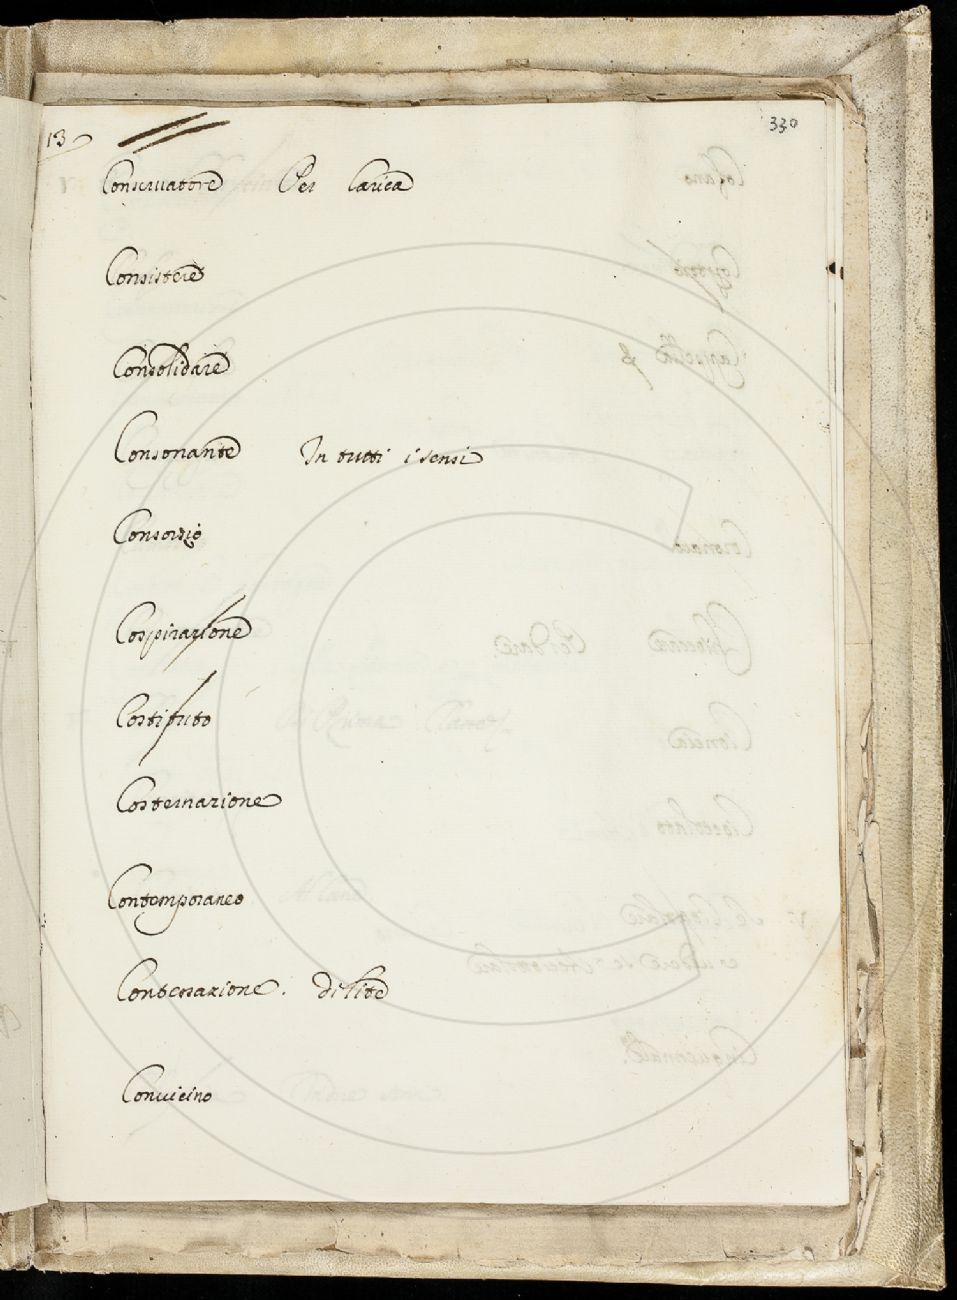 13 330
Conseruatore Per Carica
Consistere
Consolidare
Consonante In tutti i sensi
Consorzio
Cospirazione
Costituto
Costernazione
Contemporaneo
Contestazione. di lite
Conuicino